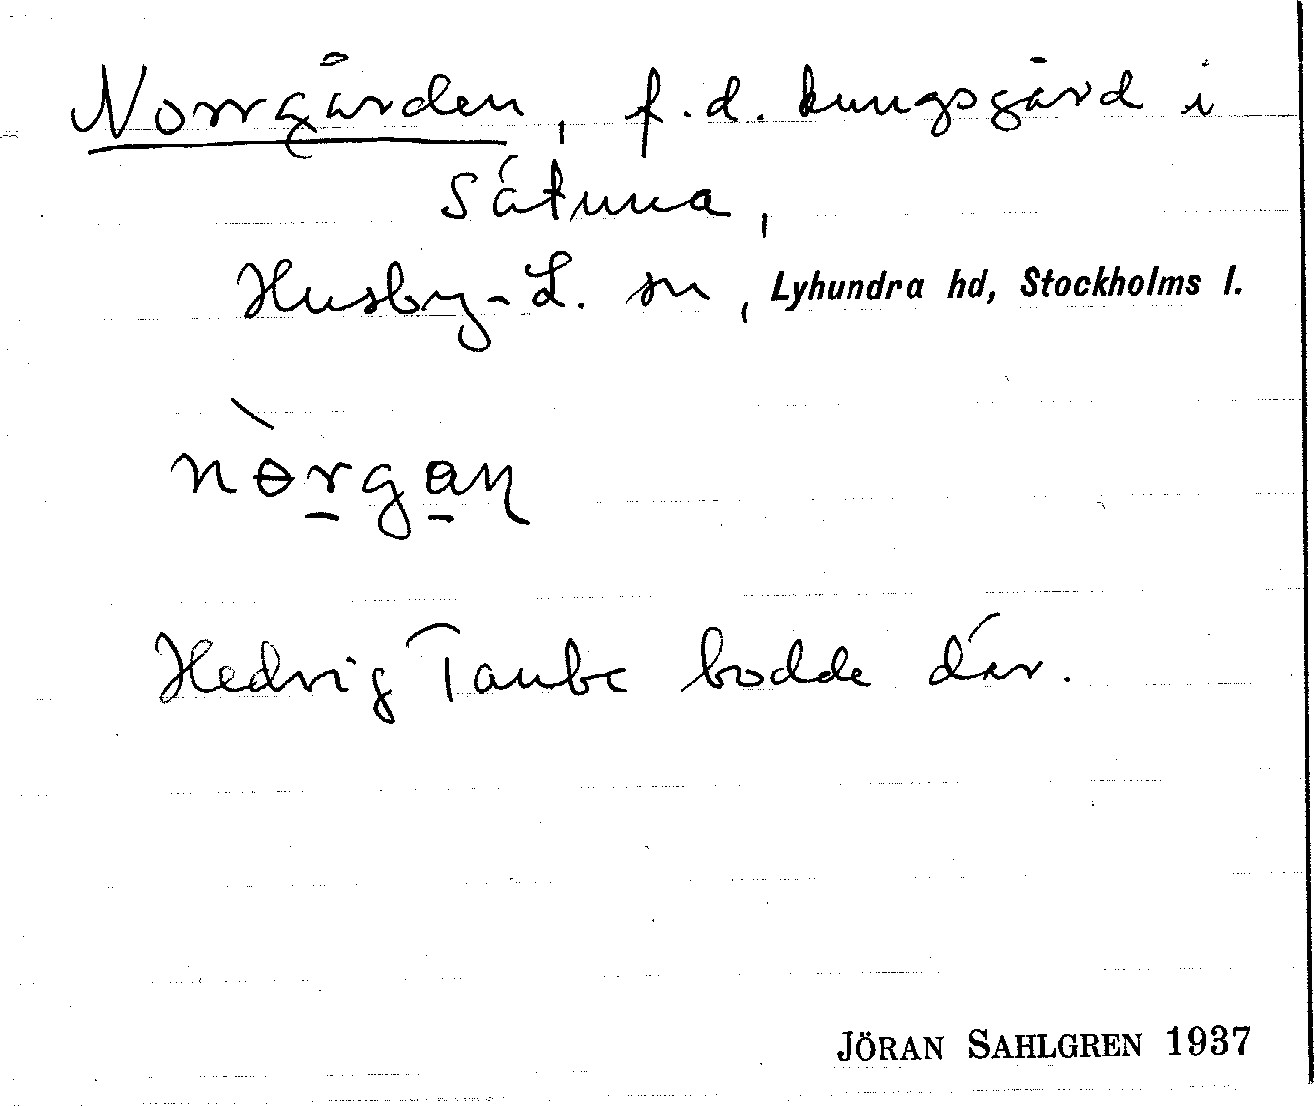 Norrgården, f.d. kungsgård i
Sätuna,
Husby-L. sn, Lyhundra hd, Stockholms l.
nɵ̀rgan
Hedvig Taube bodde där.
JÖRAN SAHLGREN 1937